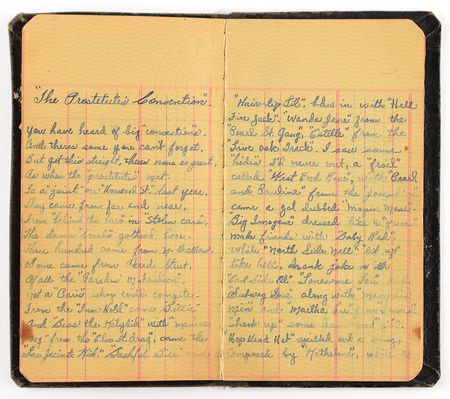 "The Prostetute's Convention".
You have heard of big "conventions",
And theres some you can't forget,
But get this straight, theres none so great,
As when the "prostitutes" met.
In a "joint" on " St" last year,
They came from far and near.
From "behind the bars" in "stolen cars",
The gathered here.
Three hundred came from No. Dallas,
Some came from Street,
Of all the "Parades of Fashion",
Not a Paris shop could compete.
From the "Inn Hotel" came
And "Bess the Katydid" with
from the "Elm St. Drag", came the
"San Jacinto Kid." "Bashful and
"Hair-lip Lil", blew in with "Hell
Fire Jack". "Wanda Jane" from the
"Pearl St Gang", "Estelle" from the
"Live Oak Track". I saw some
"kidis" I'd never met, a "frail"
called "West End Rose", with "Pearl
and Pauline" from the
came a gal dubbed "Mopin Mose".
"Big Imogene" dressed like a "queen"
make friends with "Baby
while "North Side Nell" "lit up"
like hell, drank jake with
"East Side Al" "Lonesome Lou" and
"Subway Sue" along with "Memphis
Min" and Martha
"Shook up" some
"Hop Head Het" spilled out a song,
Composed by